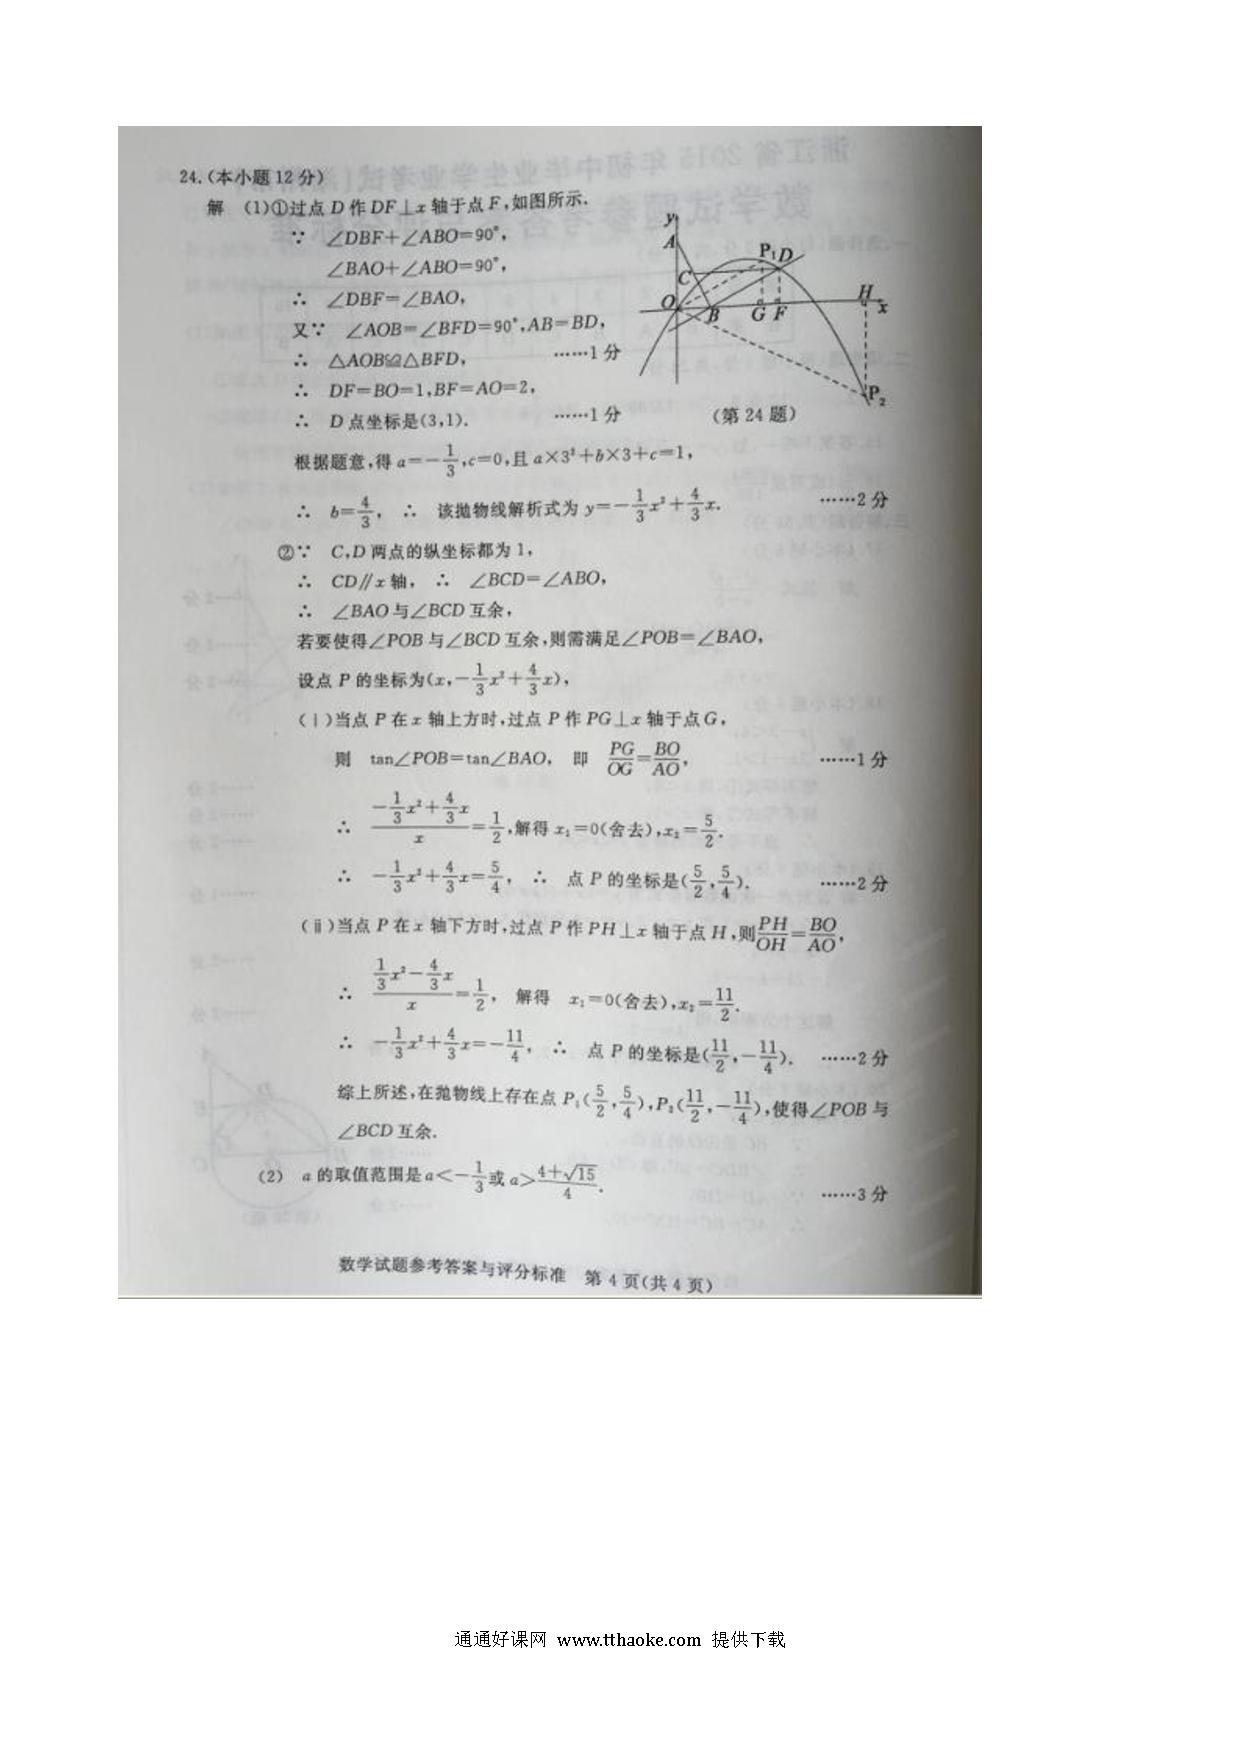 24.(本小题12分)
解 (1)①过点D作DF⊥x轴于点F,如图所示.
∵ ∠DBF+∠ABO=90°,
∠BAO+∠ABO=90°,
∴ ∠DBF=∠BAO,
又∵ ∠AOB=∠BFD=90°,AB=BD,
∴ △AOB≌△BFD, ……1分
∴ DF=BO=1,BF=AO=2,
∴ D点坐标是(3,1). ……1分
y
A
C
P₁ D
O
B
G F
H
x
P₂
(第24题)
根据题意,得a=-1/3,c=0,且a×3²+b×3+c=1,
∴ b=4/3, ∴ 该抛物线解析式为y=-1/3x²+4/3x. ……2分
②∵ C,D两点的纵坐标都为1,
∴ CD∥x轴, ∴ ∠BCD=∠ABO,
∴ ∠BAO与∠BCD互余,
若要使得∠POB与∠BCD互余,则需满足∠POB=∠BAO,
设点P的坐标为(x,-1/3x²+4/3x),
(ⅰ)当点P在x轴上方时,过点P作PG⊥x轴于点G,
则 tan∠POB=tan∠BAO, 即 PG/OG=BO/AO, ……1分
∴ (-1/3x²+4/3x)/x=1/2,解得x₁=0(舍去),x₂=5/2.
∴ -1/3x²+4/3x=5/4, ∴ 点P的坐标是(5/2,5/4). ……2分
(ⅱ)当点P在x轴下方时,过点P作PH⊥x轴于点H,则PH/OH=BO/AO,
∴ (1/3x²-4/3x)/x=1/2, 解得 x₁=0(舍去),x₂=11/2.
∴ -1/3x²+4/3x=-11/4, ∴ 点P的坐标是(11/2,-11/4). ……2分
综上所述,在抛物线上存在点P₁(5/2,5/4),P₂(11/2,-11/4),使得∠POB与
∠BCD互余.
(2) a的取值范围是a<-1/3或a>(4+√15)/4. ……3分
数学试题参考答案与评分标准 第4页(共4页)
通通好课网 www.tthaoke.com 提供下载